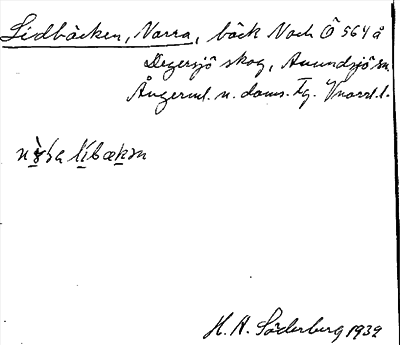 Lidbäcken, Norra, bäck Noch Ö 564 å
Degersjö skog, Anundsjö sn.
Ångerml. n. doms. Fg. Vnorrl. l.
lìbækɳ
H. A. Söderberg 1932